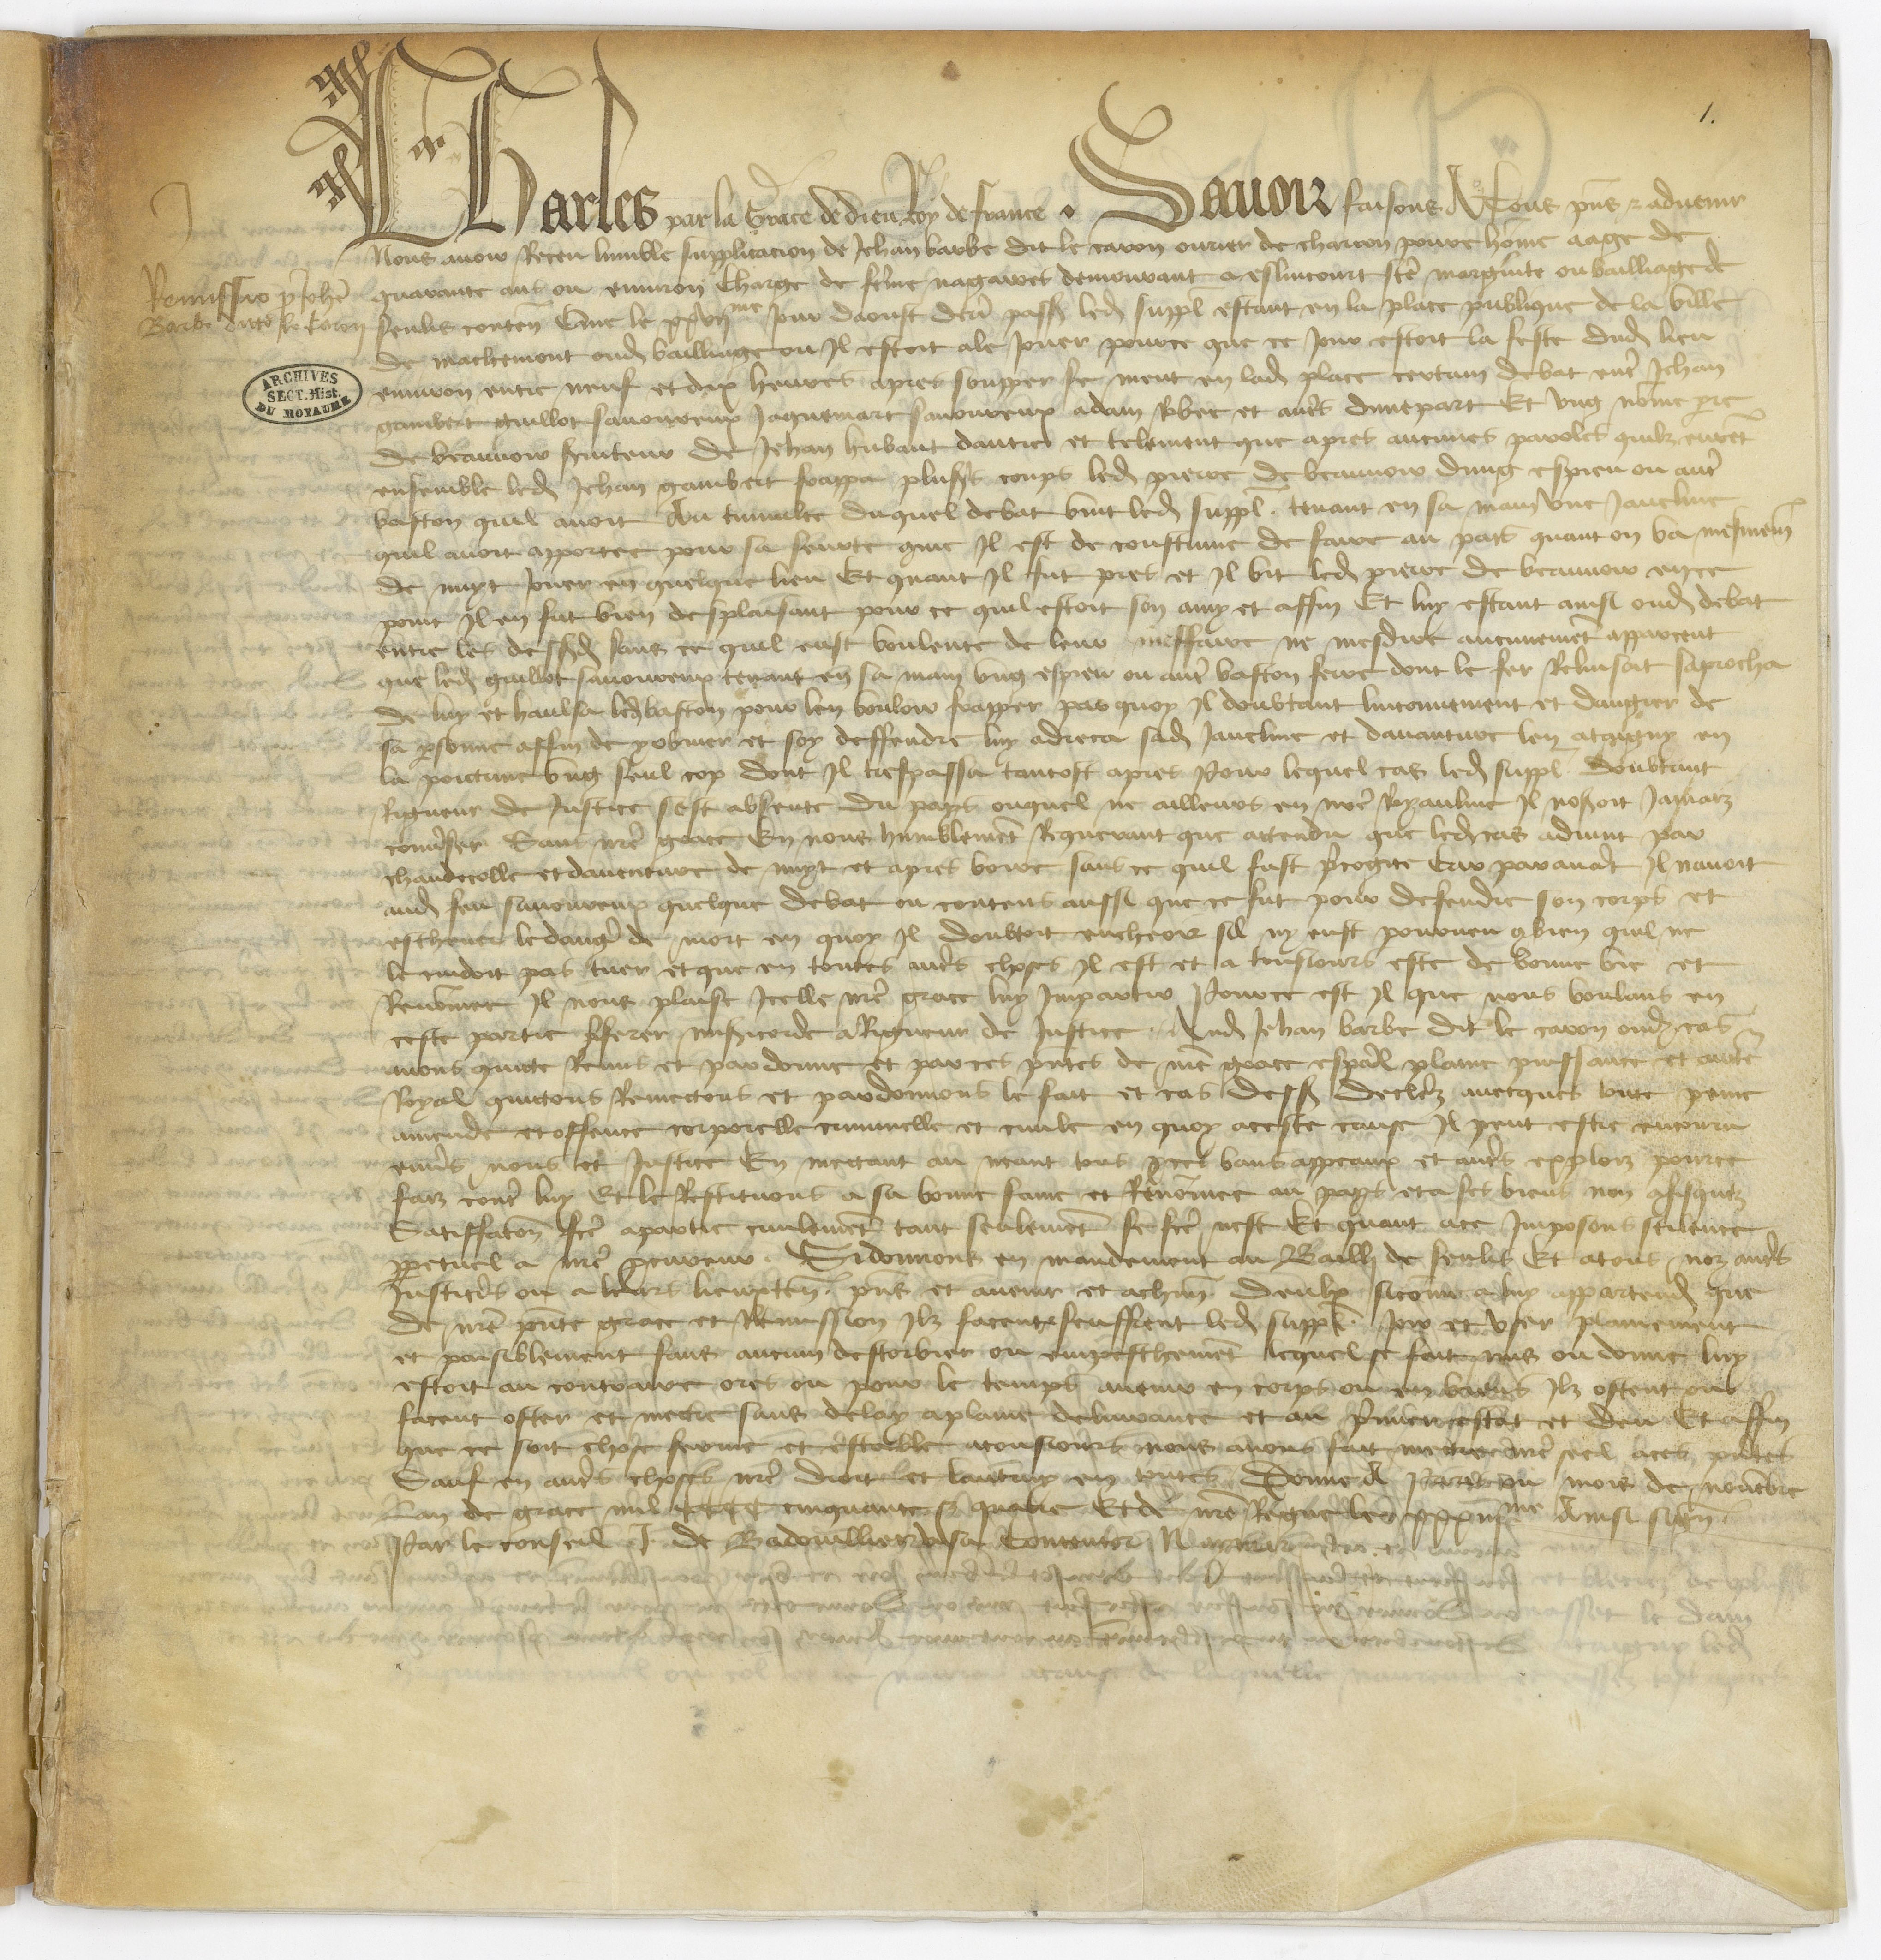 1.
Charles par la grace de dieu Roy de france . Sauoir faisons A tous pñs & aduenir
Nous auoir Receu lumble supplicacion de Jehan barbe dit le caron ourier de charron poure homẽ aage de
quarante ans ou enuiron Charge de fẽme demourant a eslincourt stẽ margũite ou bailliage de
Remissio p Johẽ
Barbe dicto le Caron
senlis conteñ Que le jour daoust derñ passẽ led suppl estant en la place publique de la ville
de oud bailliage ou Il estoit ale Jouer pource que ce Jour estoit la feste dud lieu
enuiron entre neuf et dix heures apres soupper se meut en lad place certain debat entr Jehan
gambert guillot sauoureux Jaquemart sauoureux adam et autrs dunepart Et vng nomẽ pre
de beauuoir seruiteur de Jehan dautre et telement que apres aucunes paroles quilz eurẽt
ensemble led Jehan gambert frappa plusrs coups led pierre de beauuoir dung espieu ou autr
baston quil auoit Au tumulte duquel debat vint led suppl . tenant en sa main vne Jaueline
quil auoit apportee pour sa seurte que Il est de coustume de faire au pais quant on va mesmemẽ
de nuyt Jouer en quelque lieu Et quant Il fut pres et Il vit led pierre de beauuoir en ce
point Il en fut bien desplaisant pour ce quil estoit son amy et affin Et luy estant ainsi oud debat
entre les dessusd sans ce quil eust voulente de leur meffaire ne mesdire aucunemẽt apparceut
que led guillot sauoureux tenant en sa main vng espieu ou autr baston ferre dont le fer Reluisoit saprocha
de luy et haulsa led baston pour len vouloir frapper par quoy Il doubtant linconuement et dangier de
sa psonne affin de y obuier et soy deffendre luy adreca sad Jaueline et dauanture len ataigny en
la poictrine vng seul cop dont Il trespassa tantost apres Pour lequel cas led suppl . doubtant
Rigueur de Justice sest absente du pays ouquel ne ailleurs en nrẽ Royaulme Il noseroit Jamaiz
conuerser Sans nrẽ grace En nous humblemẽt Requerant que attendu que led cas aduint par
chaudecolle et dauenture de nuyt et apres boire sans ce quil fust pcogite Car parauãt Il nauoit
aud feu sauoureux quelque debat ou contens aussi que ce fut pour defendre son corps et
escheuer le dangr de mort en quoy Il doubtoit encheoir sil ny eust pourueu cbien quil ne
le cuidoit pas tuer et que en toutes autrs choses Il est et a tousiours este de bonne vie et
Renõmee Il nous plaise Icelle nrẽ grace luy Impartir Pource est Il que nous voulans en
ceste partie pferer misericorde a Rigueur de Justice . Aud Jehan barbe dit le caron oud cas
auons quicte Remis et pardonne et par ces pñtes de nrẽ grace espãl plaine puissance et autẽ
Royal quictons Remectons et pardonnons le fait et cas dessus declerez auecques toute peine
amende et offence corporelle criminelle et ciuile en quoy a ceste cause Il peut estre encouru
enuers nous et Justice En mectant au neant tous bans appeaux et autrs exploiz pource
faiz contr luy Et le Restituons a sa bonne fame et Renõmee au pays et a ses biens non cfisquez
Satisfacion fcẽ a partie ciuilemẽt tant seulemẽt se fcẽ nest Et quant ace Imposons scilence
ppetuel a nrẽ procureur . Si donnons en mandement au Bailli de senlis Et atous noz autrs
Justicrs ou a leurs lieuxteñ . pñs et auenir et achñ deulx sicõme a luy appartendra que
de nrẽ pñte grace et Remission Ilz facent seuffrent led suppl . Joir et vser plainement
et paisiblement sans aucun destorbier ou empeschemẽt lequel se fait mis ou donne luy
estoit au contraire ores ou pour le temps auenir en corps ou en biens Ilz ostent ou
facent oster et mectre sans delay a plaine deliurance et au pmier estat et deu Et affin
que ce soit chose ferme et estable a tousiours nous auons fait mectre nrẽ seel aces pñtes
Sauf en autrs choses nrẽ droit et lautruy en toutes Donne A Paris ou mois de nouẽbre
Lan de grace mil cccc cinquante & quatre Et de nrẽ Regne le xxxiii me Ainsi signẽ
Par le conseil J. de Badouillier visa Contentor
ARCHIVES
SECT. Hist.
DU ROYAUME